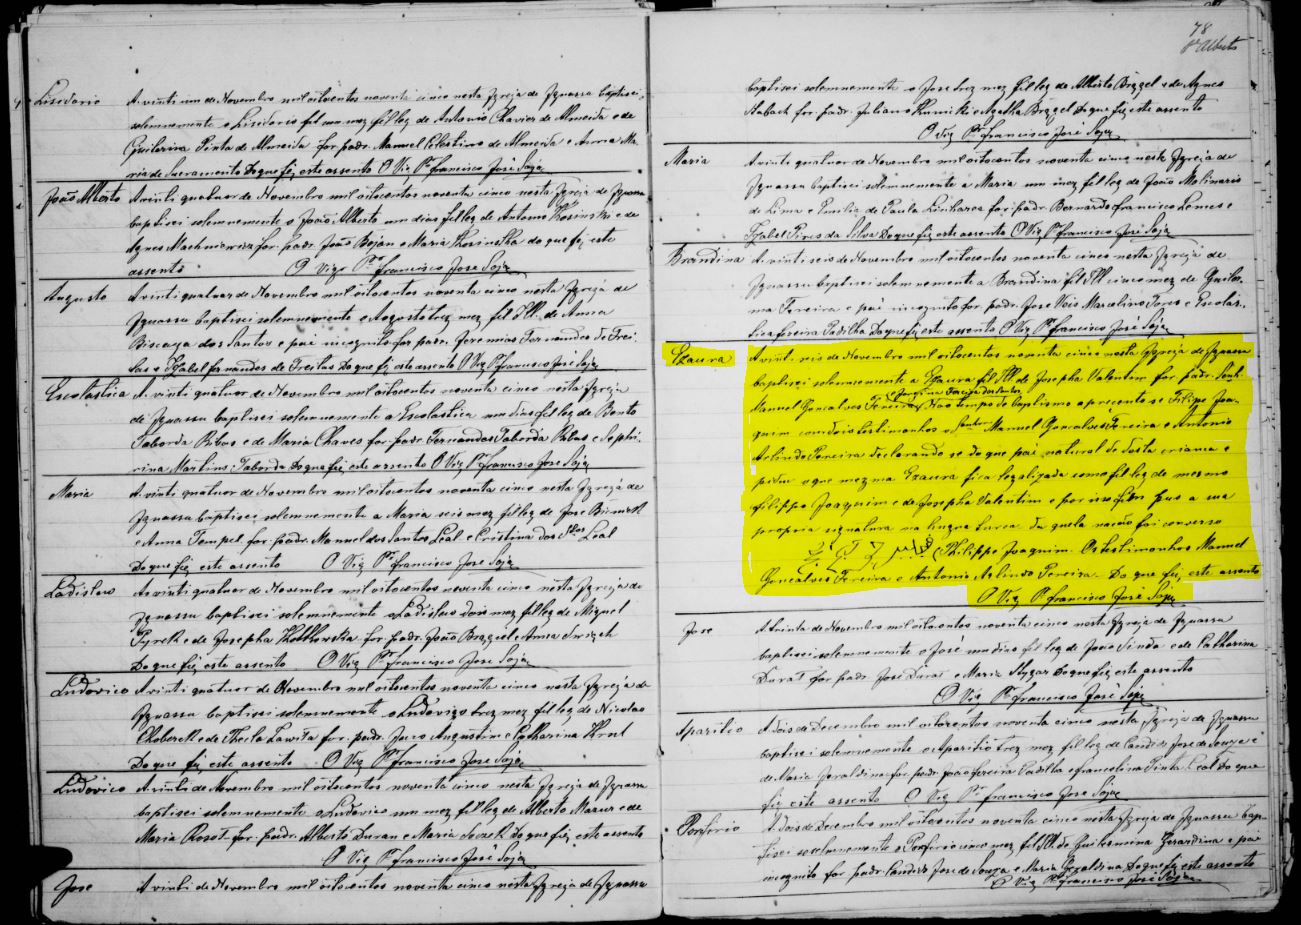 Lisidorio
A vinti um de Novembro mil oitocentos noventa cinco nesta Igreja de Iguassu baptisei
solemnemente o Lisidorio fil leg de Antonio Chaves de Almeida e de
Guilerina Pinta de Almeida for padr. Manuel Celestino de Almeida e Anna Ma-
ria de Sacramento Do que fiz este assento O Vig Pe Francisco José Soja
João Alberto
A vinti quatuor de Novembro mil oitocentos noventa cinco nesta Igreja de Iguassu
baptisei solemnemente o João Alberto um dias fil leg de Antonio Kosinski e de
Agnes for padr. João Bojan e Maria Kosinska do que fiz este
assento O Vigr Pe Francisco José Soja
Augusto
A vinti quatuor de Novembro mil oitocentos noventa cinco nesta Igreja de
Iguassu baptisei solemnemente o Augosto trez mez fil Ill. de Anna
Biscaya dos Santos e pai incognito for padr. Jeremias Fernandes de Frei-
tas e Izabel Fernandes de Freitas Do que fiz este assento O Vig Pe Francisco José Soja
Escolastica
A vinti quatuor de Novembro mil oitocentos noventa cinco nesta Igreja
de Iguassu baptisei solemnemente a Escolastica um dias fil leg de Bento
Taborda Ribas e de Maria Chaves for padr. Fernandos Taborda Ribas e Sephi-
rina Martins Taborda Do que fiz este assento O Vig Pe Francisco José Soja
Maria
A vinti quatuor de Novembro mil oitocentos noventa cinco nesta Igreja de
Iguassu baptisei solemnemente a Maria seis mez fil leg de José
e Anna Tempel for padr. Manuel dos Santos Leal e Cristina dos Stos Leal
Do que fiz este assento O Vig Pe Francisco José Soja
Ladislaw
A vinti quatuor de Novembro mil oitocentos noventa cinco nesta Igreja de
Iguassu baptisei solemnemente o Ladislaw dois mez fil leg de Miguel
e de Josepha for padr. João e Anna
Do que fiz este assento O Vig Pe Francisco José Soja
Ludovico
A vinti quatuor de Novembro mil oitocentos noventa cinco nesta Igreja de
Iguassu baptisei solemnemente o Ludovigo trez mez fil leg de Nicolao
e de for padr. Augustin e Catharina
Do que fiz este assento O Vig Pe Francisco José Soja
Ludovico
A vinti de Novembro mil oitocentos noventa cinco nesta Igreja de Iguassu
baptisei solemnemente o Ludovico um mez fil leg de Alberto Mazur e de
Maria for padr. Alberto Duran e Maria do que fiz este assento
O Vig Pe Francisco José Soja
Jose
A vinti de Novembro mil oitocentos noventa cinco nesta Igreja de Iguassu
78
baptisei solemnemente o Jose trez mez fil leg de Alberto e de Agnes
for padr. Julian e Agatha Do que fiz este assento
O Vig Pe Francisco José Soja
Maria
A vinti quatuor de Novembro mil oitocentos noventa cinco nesta Igreja de
Iguassu baptisei solemnemente a Maria um mez fil leg de João Molinario
de Lima e Emilia de Paula for padr. Bernardo Francisco Lemes e
Izabel Pires da Silva Do que fiz este assento O Vig Pe Francisco José Soja
Brandina
A vinti seis de Novembro mil oitocentos noventa cinco nesta Igreja de
Iguassu baptisei solemnemente a Brandina fil Ill cinco mez de Guiler-
ma Ferreira e pai incognito for padr. Jose Marcelino e Escolas-
tica Padilha Do que fiz este assento O Vig Pe Francisco José Soja
Ezaura
A vinti seis de Novembro mil oitocentos noventa cinco nesta Igreja de Iguassu
baptisei solemnemente a Ezaura fil Ill de Josepha Valentin for padr. Senh.
Manuel Goncalves Pereira No tempo do baptismo apresento se Filipe Joa-
quim com dois testimonhos o Senhor Manuel Goncalves Pereira e Antonio
Arlindo Pereira declarando se do que pai natural de dosta crianca e
pidiu o que mezma Ezaura fica legalizada como fil leg de mesmo
Filippe Joaquim e de Josepha Valentim e por isso pus a sua
propria signatura na lingua turca da quela nação foi converso
(Philippe Joaquim. Os testimonhos Manuel
Goncalves Pereira e Antonio Arlindo Pereira. Do que fiz este assento
O Vig Pe Francisco José Soja
Jose
A trinta de Novembro mil oitocentos noventa cinco nesta Igreja de Iguassu
baptisei solemnemente o José um dias fil leg de João e de Catharina
for padr. José e Maria Do que fiz este assento
O Vig Pe Francisco José Soja
Aparitio
A dois de Decembro mil oitocentos noventa cinco nesta Igreja de Iguassu
baptisei solemnemente o Aparitio trez mez fil leg de Candido Jose de Souza e
de Maria Jeraldina for padr. João Pereira Padilha e Francelina Pinta Leal Do que
fiz este assento O Vig Pe Francisco José Soja
Porfirio
A dois de Decembro mil oitocentos noventa cinco nesta Igreja de Iguassu bap-
tisei solemnemente o Porfirio cinco mez fil Ill. de Guilermina Gerardina e pai
incognito for padr. Candido Jose de Souza e Maria Geraldina Do que fiz este assento
O Vig Pe Francisco José Soja